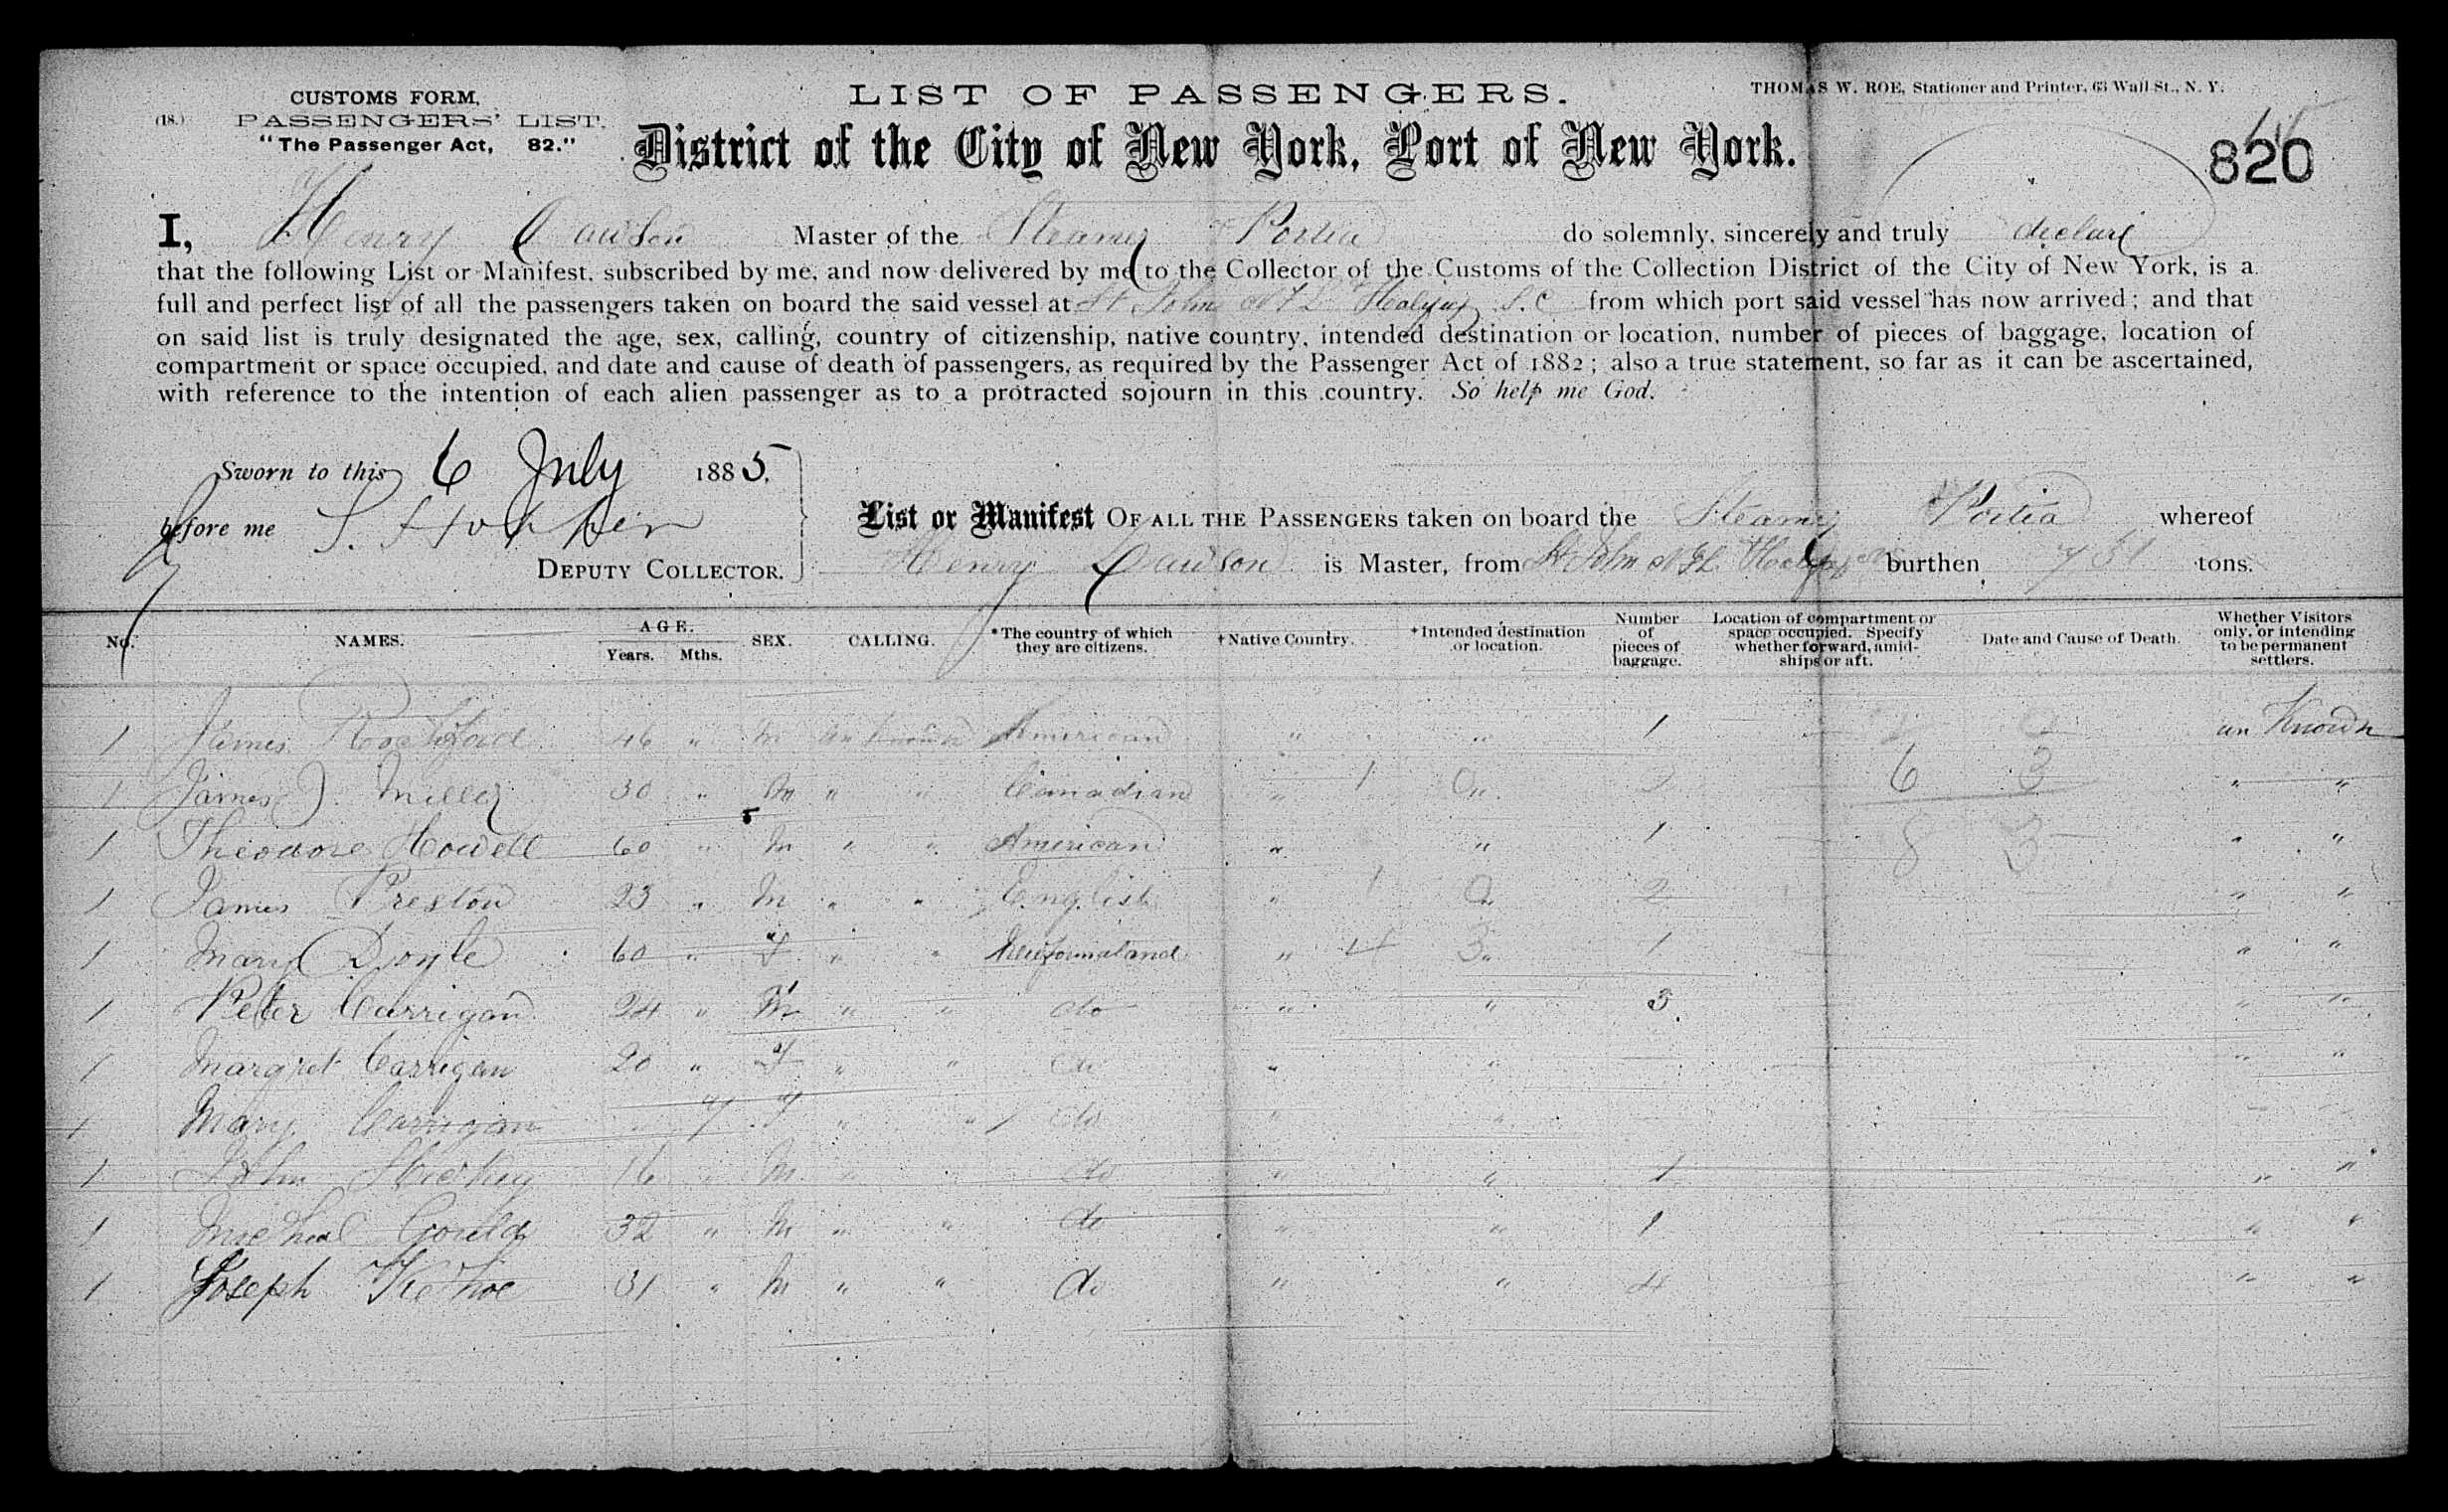 CUSTOMS FORM,
(18.) PASSENGERS' LIST.
"The Passenger Act, 82."
LIST OF PASSENGERS.
THOMAS W. ROE, Stationer and Printer, 63 Wall St., N. Y.
District of the City of New York, Port of New York.
820
I, Henry Dawson Master of the Steamer Portia do solemnly, sincerely and truly declare
that the following List or Manifest, subscribed by me, and now delivered by me to the Collector of the Customs of the Collection District of the City of New York, is a
full and perfect list of all the passengers taken on board the said vessel at St John NFL Halifax from which port said vessel has now arrived; and that
on said list is truly designated the age, sex, calling, country of citizenship, native country, intended destination or location, number of pieces of baggage, location of
compartment or space occupied, and date and cause of death of passengers, as required by the Passenger Act of 1882; also a true statement, so far as it can be ascertained,
with reference to the intention of each alien passenger as to a protracted sojourn in this country. So help me God.
Sworn to this 6 July 1885.
before me
DEPUTY COLLECTOR.
List or Manifest OF ALL THE PASSENGERS taken on board the Steamer Portia whereof
Henry Dawson is Master, from St John NFL Halifax burthen tons.
No. NAMES. AGE. Years. Mths. SEX. CALLING. *The country of which they are citizens. †Native Country. *Intended destination or location. Number of pieces of baggage. Location of compartment or space occupied. Specify whether forward, amidships or aft. Date and Cause of Death. Whether Visitors only, or intending to be permanent settlers.
1 James 46 " M unknown American " " 1 un Known
1 James J. Miller 30 " M " " Canadian " 1 2 6 3 " "
1 Theodore Howell 60 " M " " American " " 1 8 3 " "
1 James Preston 23 " M " " English " 1 2 2 " "
1 Mary Doyle 60 " F " " Newfounaland " 3 1 " "
1 Peter Carrigan 24 " M " " do " " 3 " "
1 Margret Carrigan 20 " F " " do " " " "
1 Mary Carrigan " 7 F " " do " "
1 John Hickey 16 " M " " do " " 1 " "
1 Micheal Gould 32 " M " " do " " 1 " "
1 Joseph Kehoe 31 " M " " do " " 4 " "